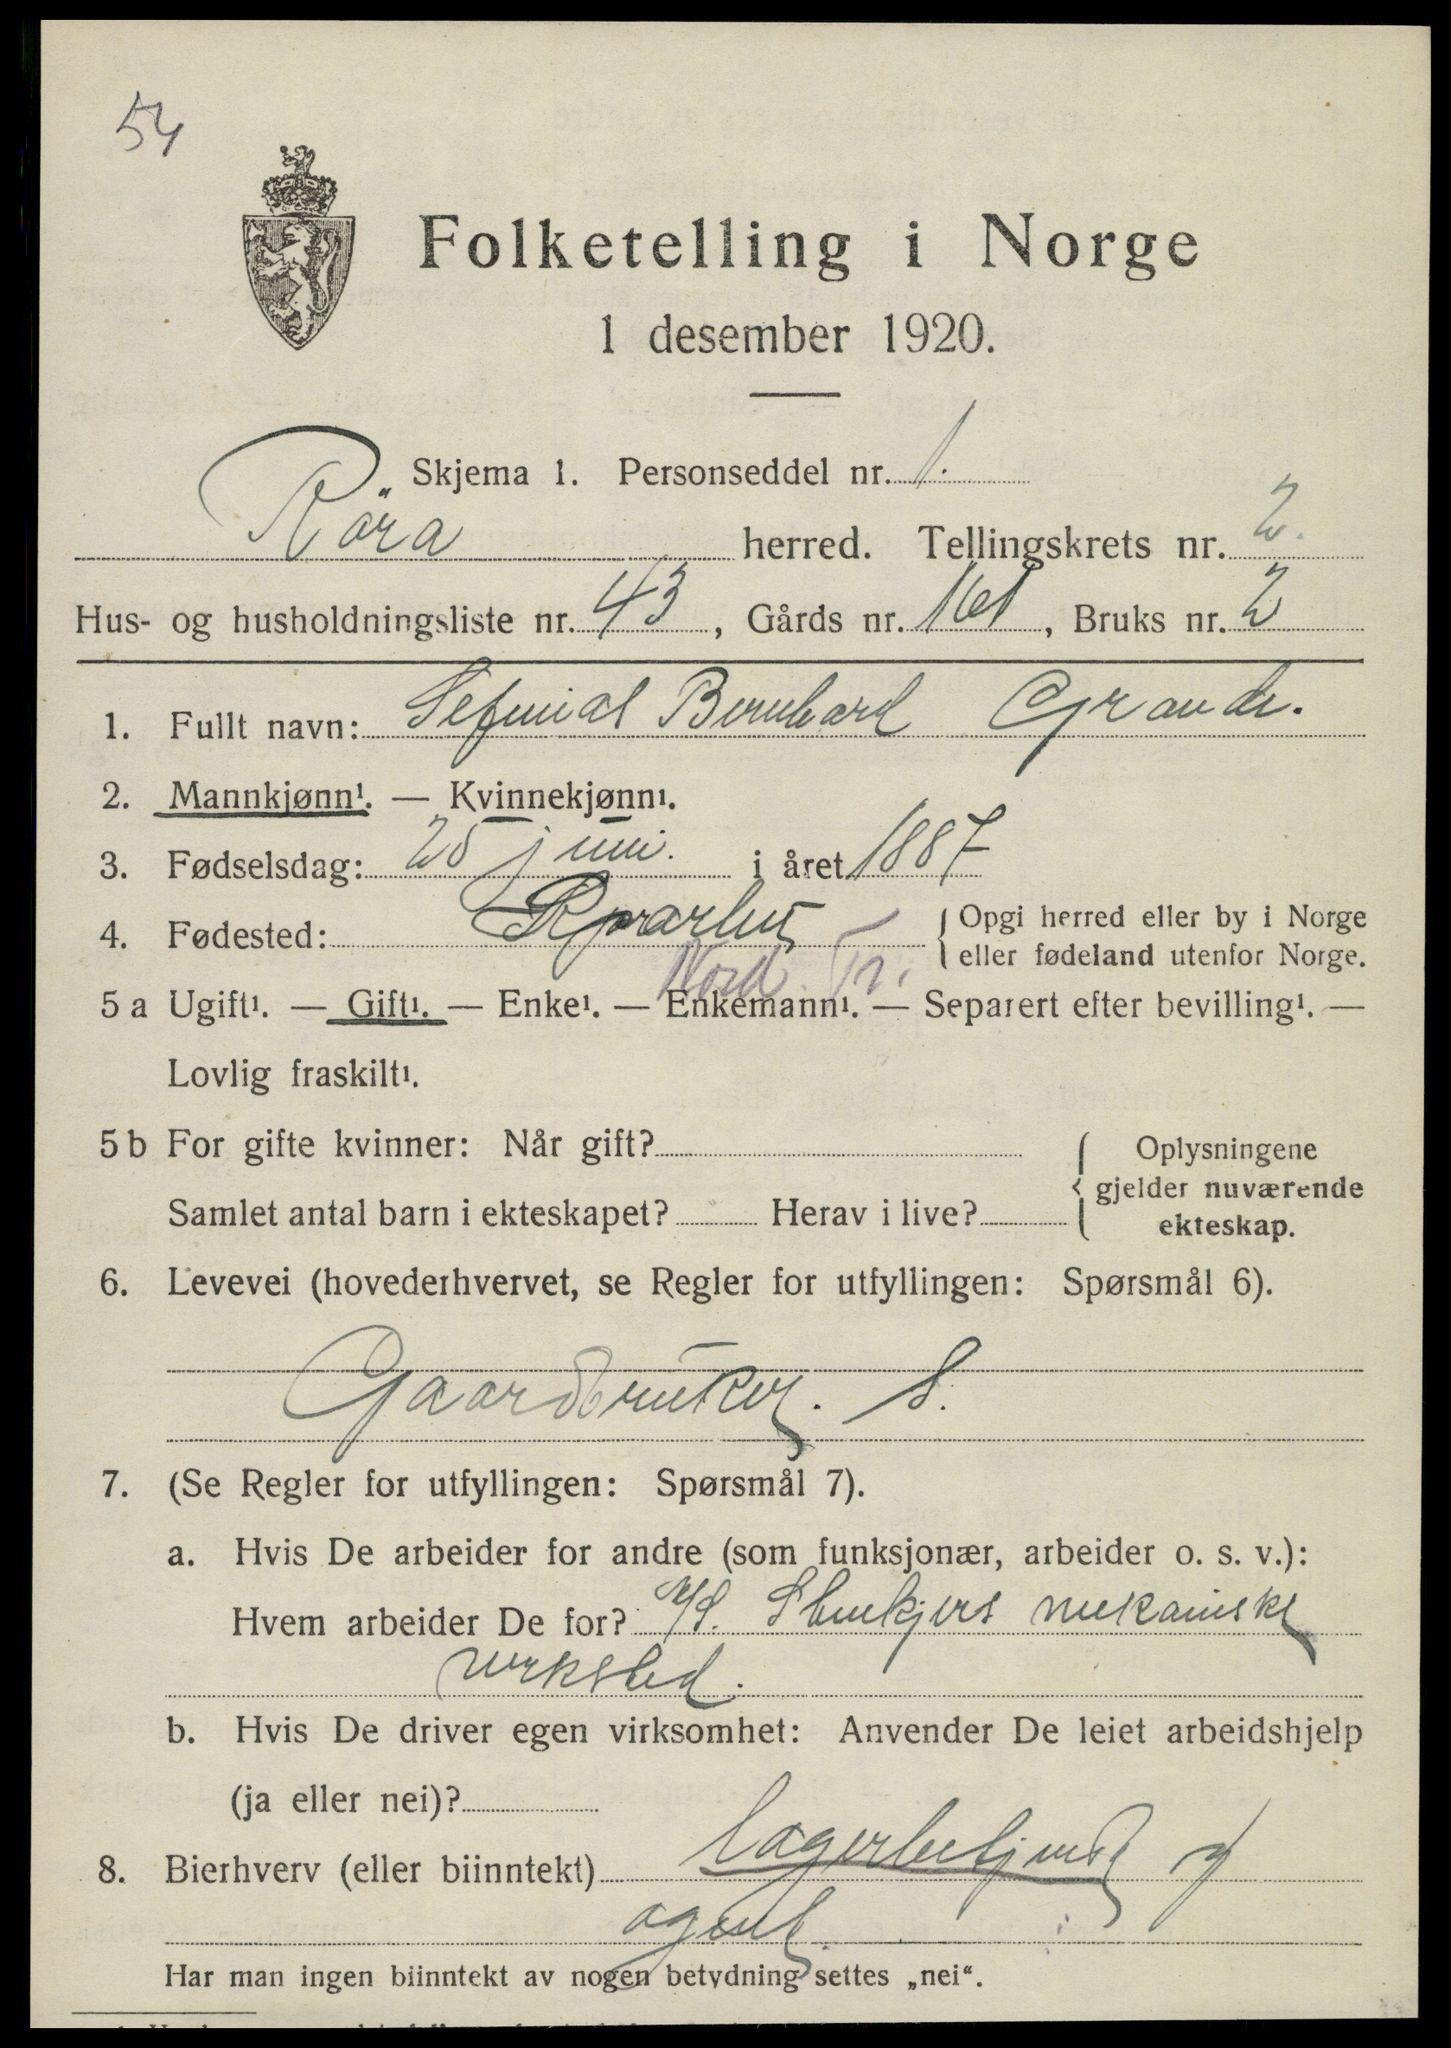 54
Folketelling i Norge
1 desember 1920.
Skjema 1. Personseddel nr. 1.
Röra herred. Tellingskrets nr. 2.
Hus- og husholdningsliste nr. 43, Gårds nr. 161, Bruks nr. 2
1. Fullt navn: Bernhard Grande.
2. Mannkjønn¹. — Kvinnekjønn¹.
3. Fødselsdag: 25 juni. i året 1887
4. Fødested: { Opgi herred eller by i Norge
eller fødeland utenfor Norge.
Nord Tr.
5 a Ugift¹. — Gift¹. — Enke¹. — Enkemann¹. — Separert efter bevilling¹. —
Lovlig fraskilt¹.
5 b For gifte kvinner: Når gift? { Oplysningene
gjelder nuværende
Samlet antal barn i ekteskapet? Herav i live? ekteskap.
6. Levevei (hovederhvervet, se Regler for utfyllingen: Spørsmål 6).
Gaardbruker. S.
7. (Se Regler for utfyllingen: Spørsmål 7).
a. Hvis De arbeider for andre (som funksjonær, arbeider o. s. v.):
Hvem arbeider De for? A/S. Stenkjers mekaniske
verksted.
b. Hvis De driver egen virksomhet: Anvender De leiet arbeidshjelp
(ja eller nei)?
8. Bierhverv (eller biinntekt) lagerbetjent
agent
Har man ingen biinntekt av nogen betydning settes „nei“.